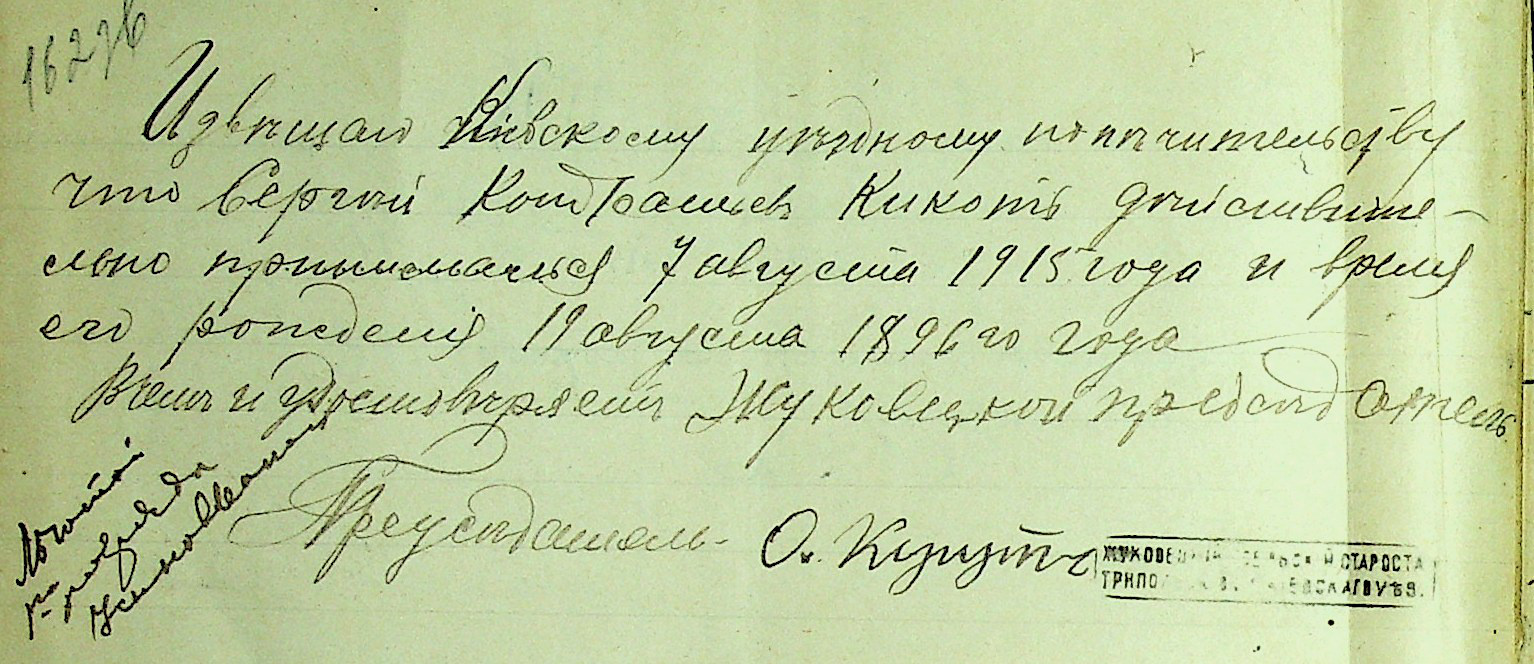 16276
Извѣщаю Кіевскому уѣздному попѣчительству
что Сергѣй Кондратьевъ Кикоть дѣйствите-
льно принимался 7 августа 1915 года и время
его рожденія 19 августа 1896 го года
В чемъ и удостовѣряетъ Жуковецкой председатель.
Председатель О.
ЖУКОВЕЦКІЙ СЕЛЬСКІЙ СТАРОСТА
ТРИПО В. КІЕВСКАГО УѢЗ.